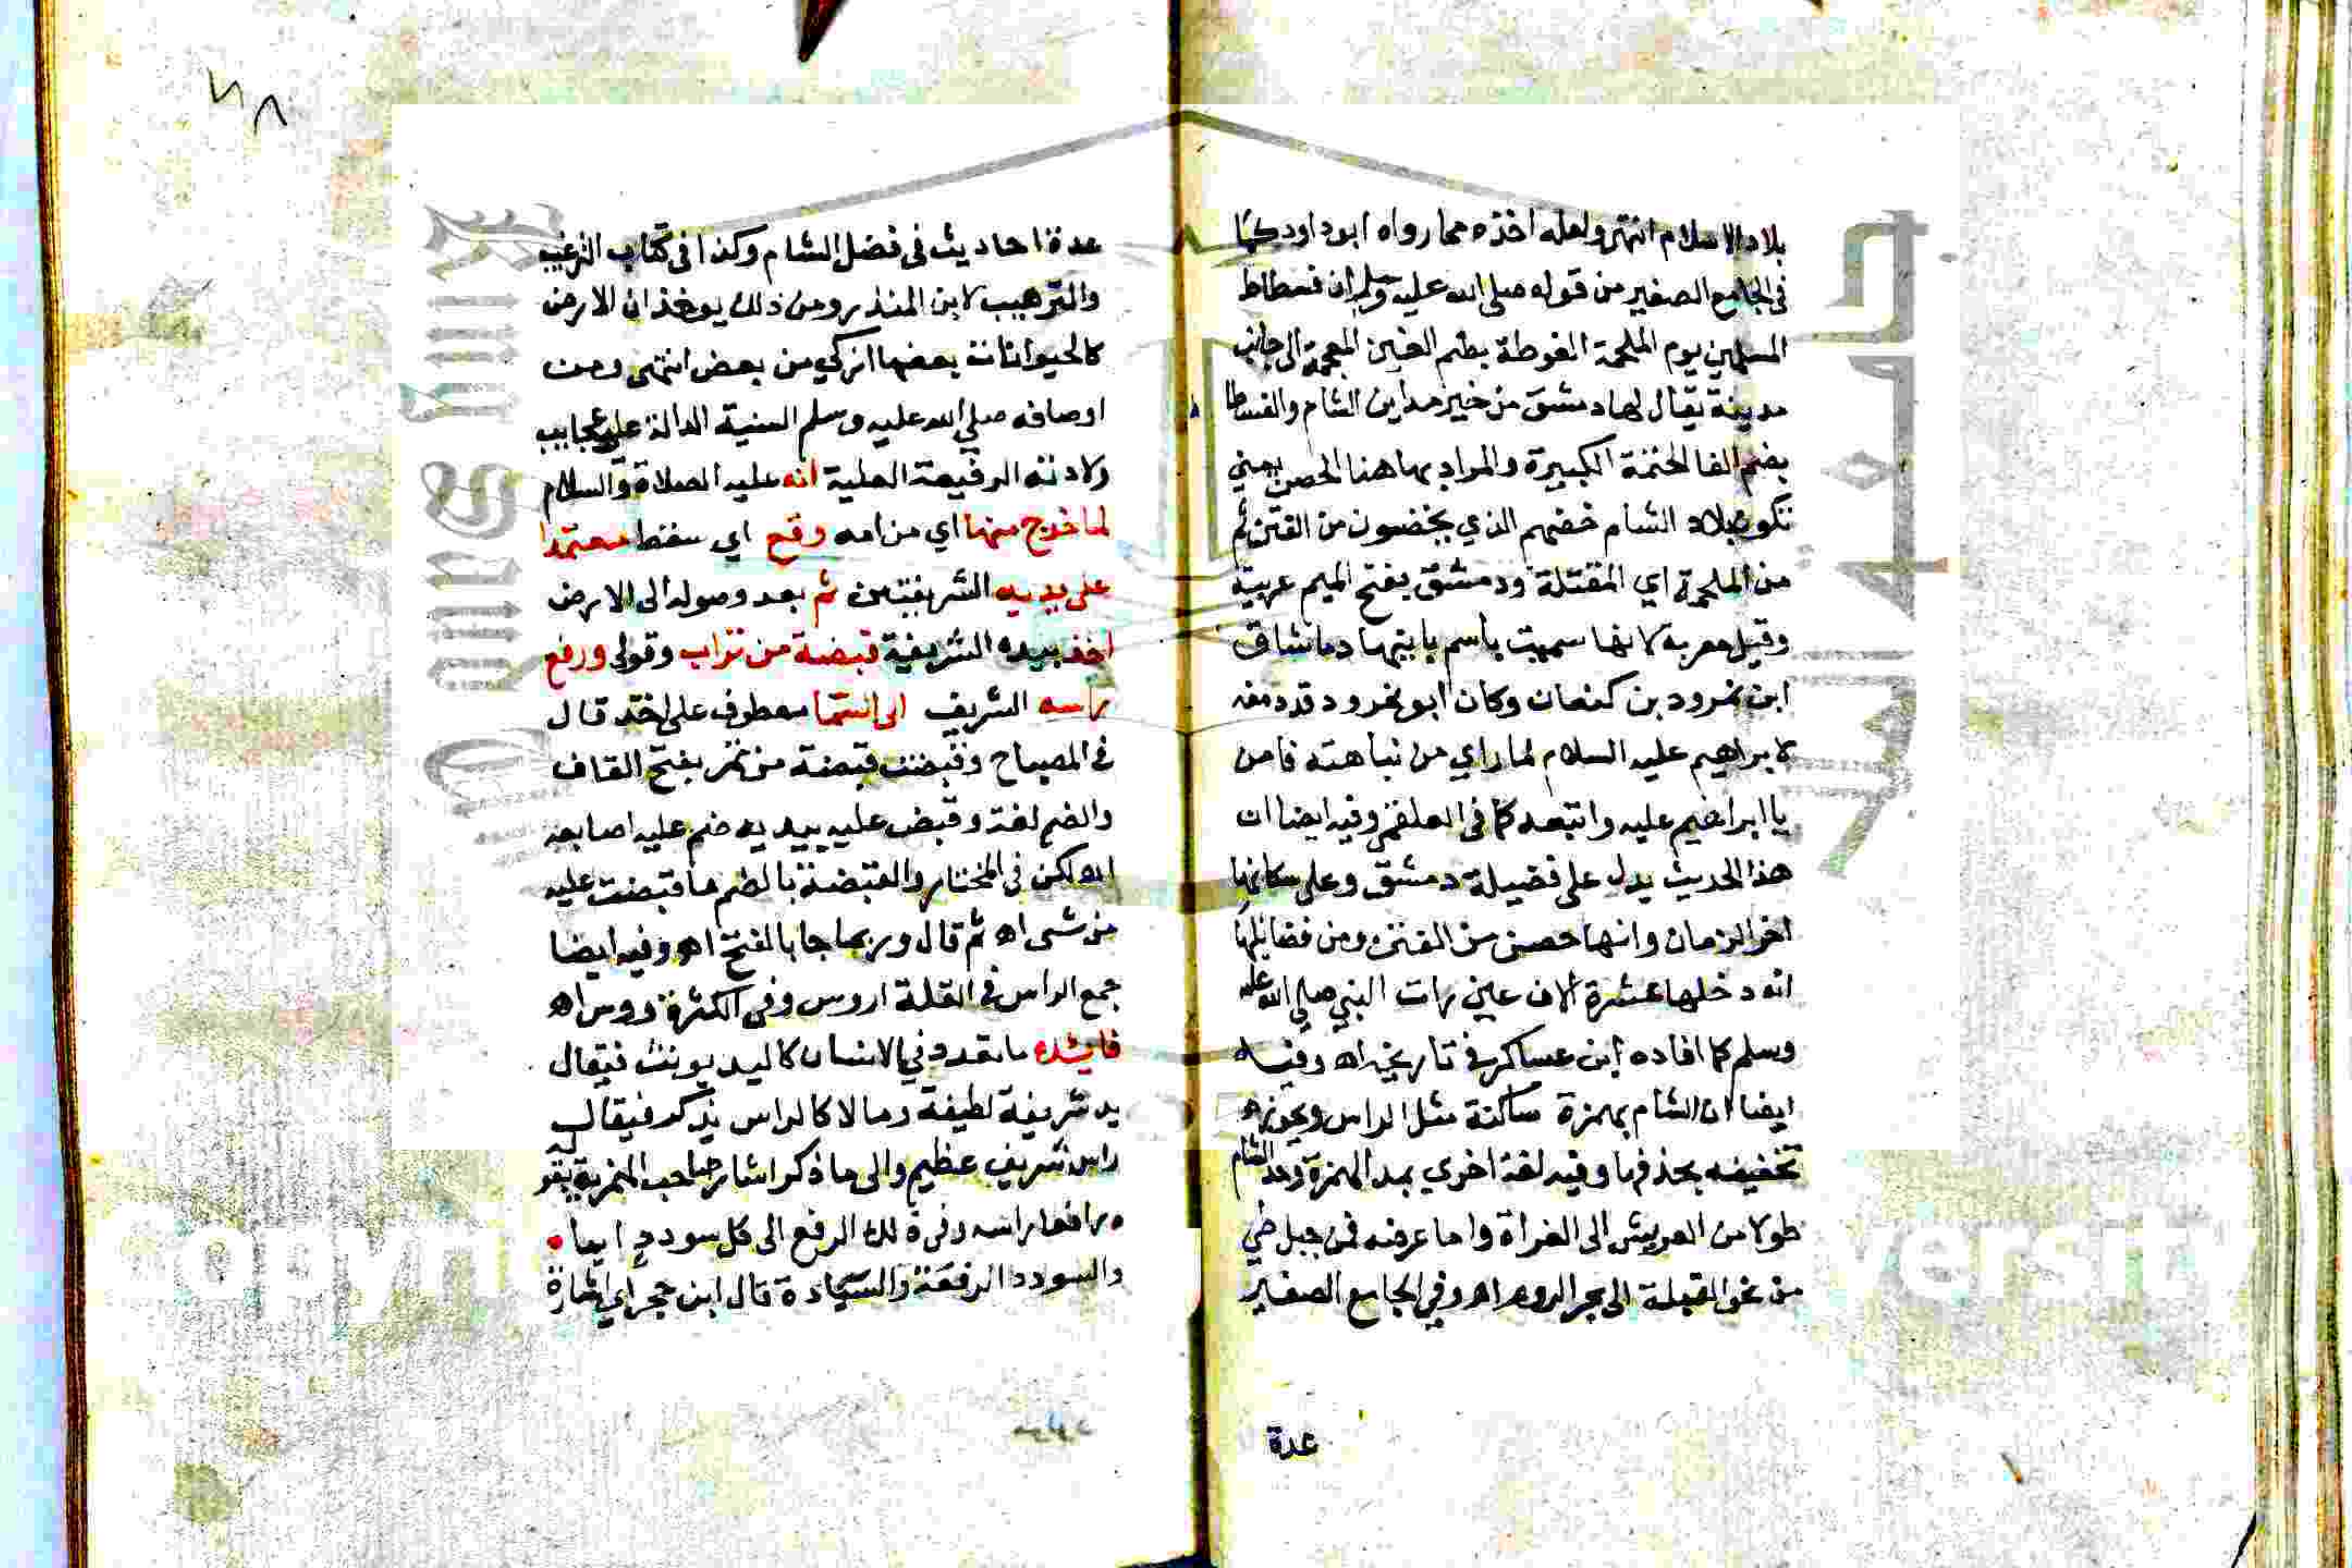 بلاد الاسلام انتهى ولعله اخذه مما رواه ابوداود كما
في الجامع الصغير من قوله صلى الله عليه وسلم ان فسطاط
المسلمين يوم الملحمة الغوطة بضم الغين المعجمة الى جانب
مدينة يقال لها دمشق من خير مداين الشام والفسطاط
بضم الفا الخيمة الكبيرة والمراد بها هنا الحصن يعني
تكون بلاد الشام حصنهم الذي يتحصنون من الفتن ثم
من الملحمة اي المقتلة ودمشق بفتح الميم عربية
وقيل معربه لانها سميت باسم بانيها دمانشاق
ابن نمرود بن كنعان وكان ابو نمرود قد دفعه
لابراهيم عليه السلام لما راي من نباهته فامن
يا ابراهيم عليه واتبعه كما في العلقمي وفيه ايضا ان
هذا الحديث يدل على فضيلة دمشق وعلى سكانها
اخر الزمان وانها حصن من الفتن ومن فضايلها
انه دخلها عشرة الاف عين رات النبي صلى الله عليه
وسلم كما افاده ابن عساكر في تاريخه اه وفيه
ايضا ان الشام بهمزة ساكنة مثل الراس ويجوز
تخفيفه بحذفها وفيه لغة اخري بمد الهمزة وحد الشام
طولا من العريش الى الفراة واما عرضه فمن جبل طي
من نحو القبلة الى بحر الروم اه وفي الجامع الصغير
عدة
عدة احاديث في فضل الشام وكذا في كتاب الترغيب
والترهيب لابن المنذر ومن ذلك يوخذ ان الارض
كالحيوانات بعضها ازكي من بعض انتهى ومن
اوصافه صلي الله عليه وسلم السنية الدالة على عجايب
ولادته الرفيعة العلية انه عليه الصلاة والسلام
لما خرج منها اي من امه وقع اي سقط معتمدا
على يديه الشريفتين ثم بعد وصوله الى الارض
اخذ بيده الشريفة قبضة من تراب وقوله ورفع
راسه الشريف الى السما معطوف على اخذ قال
في المصباح وقبضت قبضة من تمر بفتح القاف
والضم لغة وقبض عليه بيديه ضم عليه اصابعه
اه لكن في المختار والقبضة بالضم ما قبضت عليه
من شي اه ثم قال وربما جا بالفتح اه وفيه ايضا
جمع الراس في القلة اروس وفي الكثرة روس اه
فايده ما تعدد في الانسان كاليد يونث فيقال
يد شريفة لطيفة وما لا كالراس يذكر فيقال
راس شريف عظيم والى ما ذكر اشار صاحب الهمزية بقوله
رافعا راسه وفي ذلك الرفع الى كل سودد ايما
والسودد الرفعة والسيادة قال ابن حجر اي اشارة